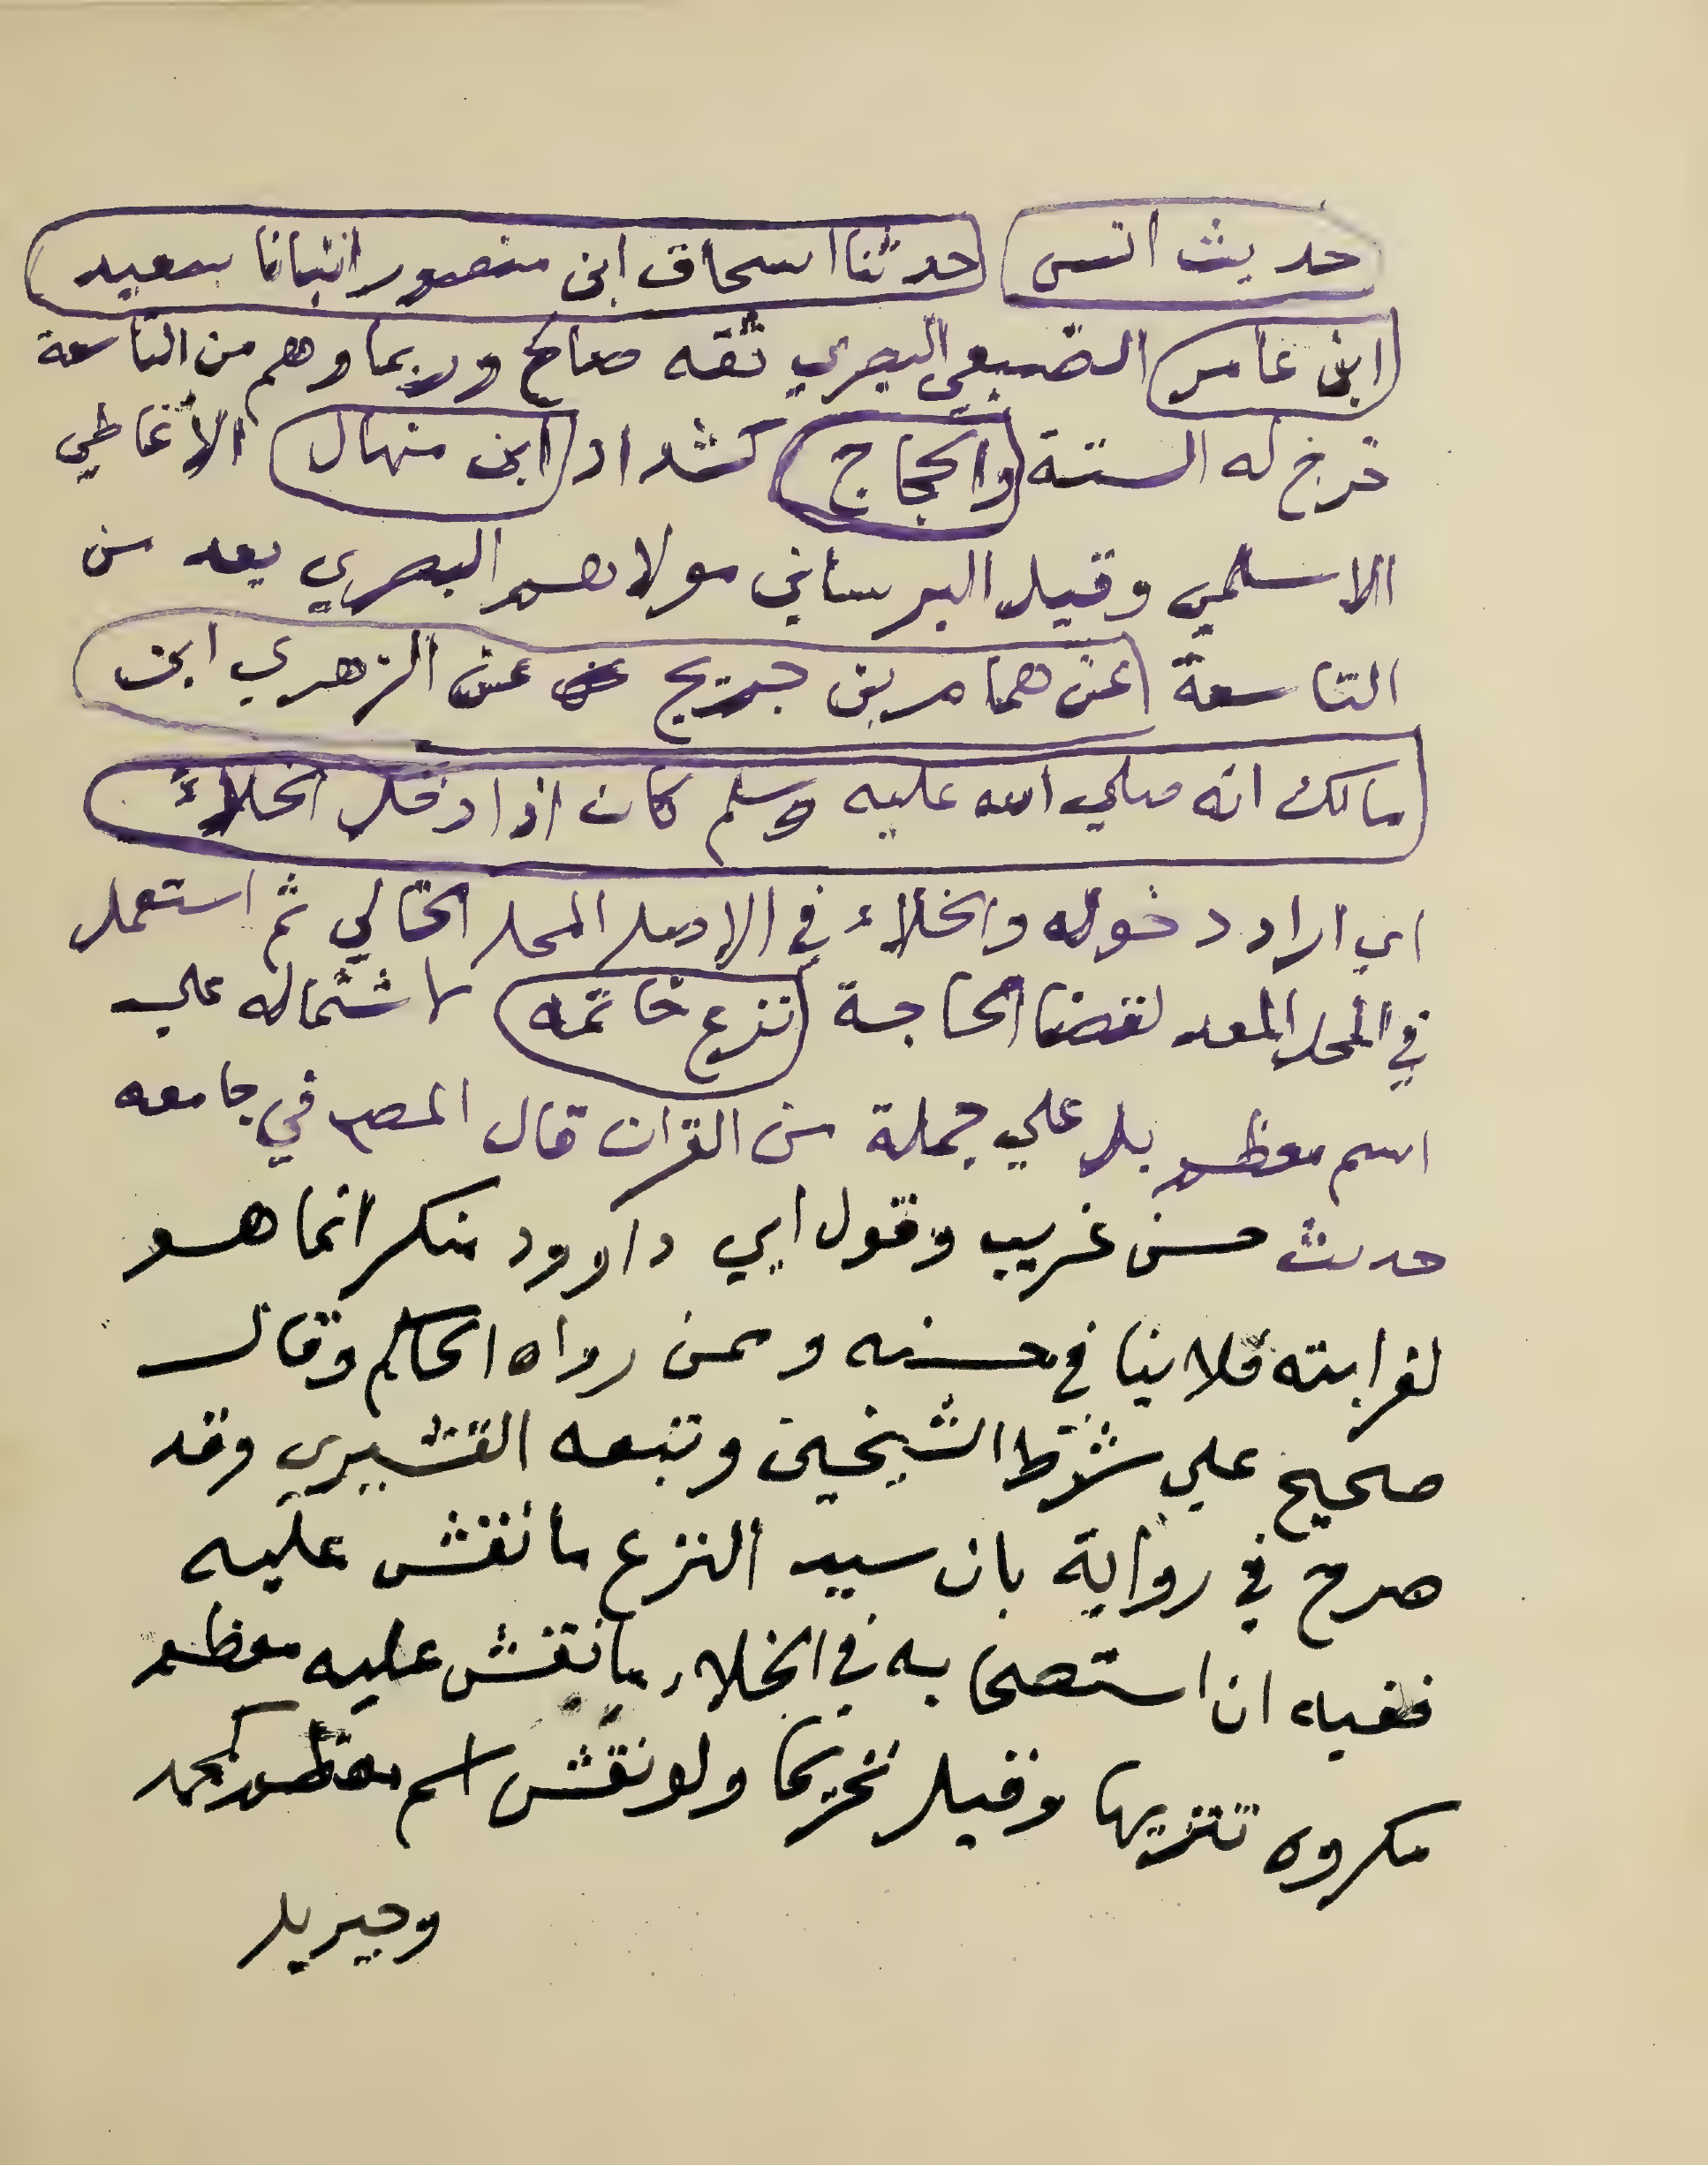 حديث انس حدثنا اسحاق ابن منصور انبانا سعيد
ابن عامر الضبعي البصري ثقه صالح وربما وهم من التاسعة
خرج له الستة والحجاج كشداد ابن منهال الأنماطي
الاسلمي وقيل البرساني مولاهم البصري يعد من
التاسعة عن همام بن جريج عن الزهري ابن
مالك انه صلي الله عليه وسلم كان اذا دخل الخلاء
اي اراد دخوله والخلاء في الاصل المحل الخالي ثم استعمل
في المحل المعد لقضا الحاجة نزع خاتمه لاشتماله علي
اسم معظم بل علي جملة من القران قال المصـ في جامعه
حديث حسن غريب وقول ابي داوود منكر انما هو
لغرابته فلا ينافي حسنه وممن رواه الحاكم وقال
صحيح علي شرط الشيخين وتبعه القشيري وقد
صرح في رواية بان سبب النزع ما نقش عليه
ففيه ان استصحابه في الخلاء ما نقش عليه معظم
مكروه تنزيها وقيل تحريما ولو نقش اسم معظم كمحمد
وجبريل